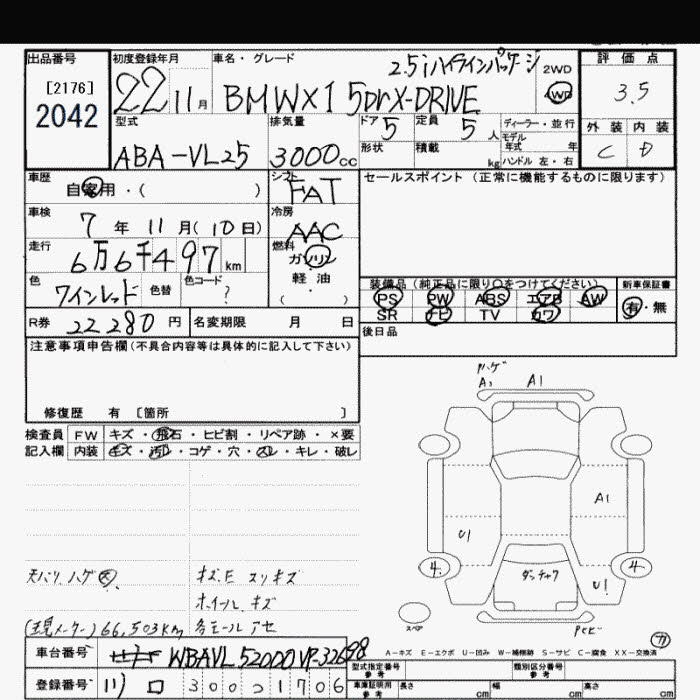 出品番号 初度登録年月 車名・グレード 評価点
[2176] 2.5iハイラインパッケージ 2WD
2042 22 11月 BMW X1 5Dr X-DRIVE 4WD 3.5
型式 排気量 ドア 5 定員 5人 ディーラー・並行 外装 内装
モデル年式 年
ABA-VL25 3000cc 形状 積載 kg ハンドル 左・右 C D
車歴 シフト セールスポイント (正常に機能するものに限ります)
自家用・( ) FAT
車検 冷房
7年 11月(10日) AAC
走行 燃料
6万6千497km ガソリン
色 色替 色コード 軽油 装備品(純正品に限り○をつけてください) 新車保証書
ワインレッド ? ・( ) PS PW ABS エアB AW 有・無
R券 22280円 名変期限 月 日 SR ナビ TV カワ
注意事項申告欄(不具合内容等は具体的に記入して下さい) 後日品
修復歴 有 〔箇所 〕
ハゲ
A1 A1
検査員 FW キズ・飛石・ヒビ割・リペア跡・×要
記入欄 内装 キズ・汚レ・コゲ・穴・スレ・キレ・破レ
A1
U1
4. 4.
天バリ ハゲ 大. キズ.E スリキズ ダッチャク U!
ホイール キズ
(現メーター)66,503Km 各モール アセ スペア
A-キズ E-エクボ U-凹み W-補修跡 S-サビ C-腐食 XX-交換済
車台番号 WBAVL52000VP-32698 型式指定番号 参考 類別区分番号 参考
登録番号 11) ロ 300 つ1706 車庫証明用 参考 長さ cm 幅 cm 高さ cm